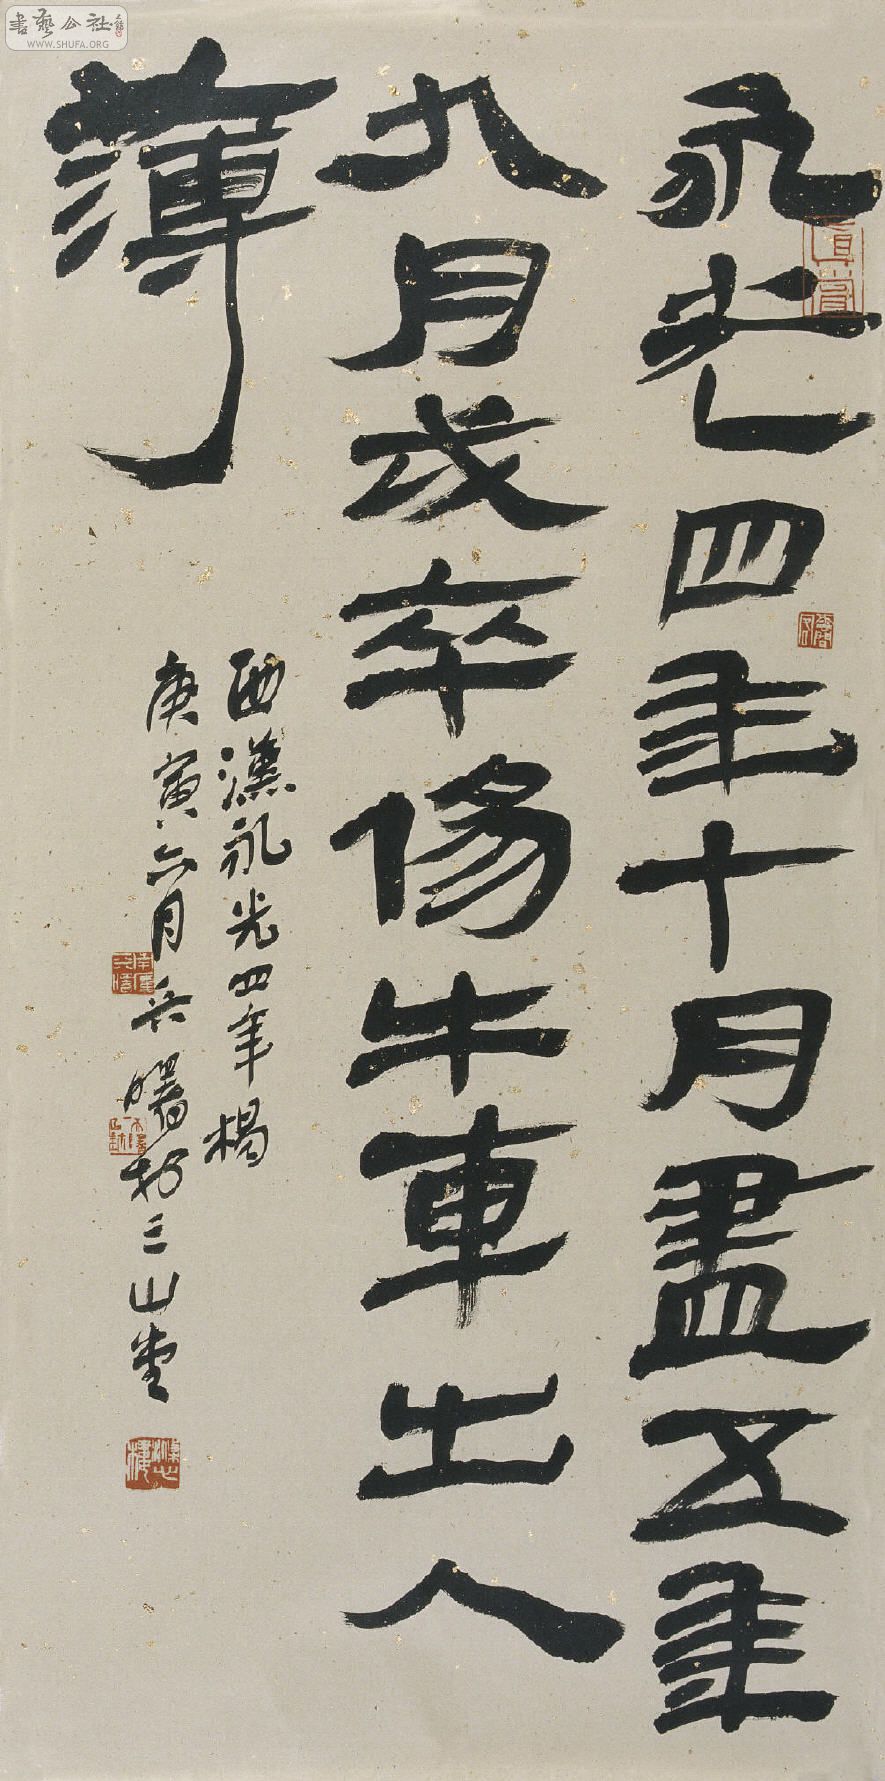 永光四年十月盡五年
九月戍卒傷牛車出入
薄
西漢永光四年楬
庚寅六月兵曙於三山堂
書藝公社
WWW.SHUFA.ORG